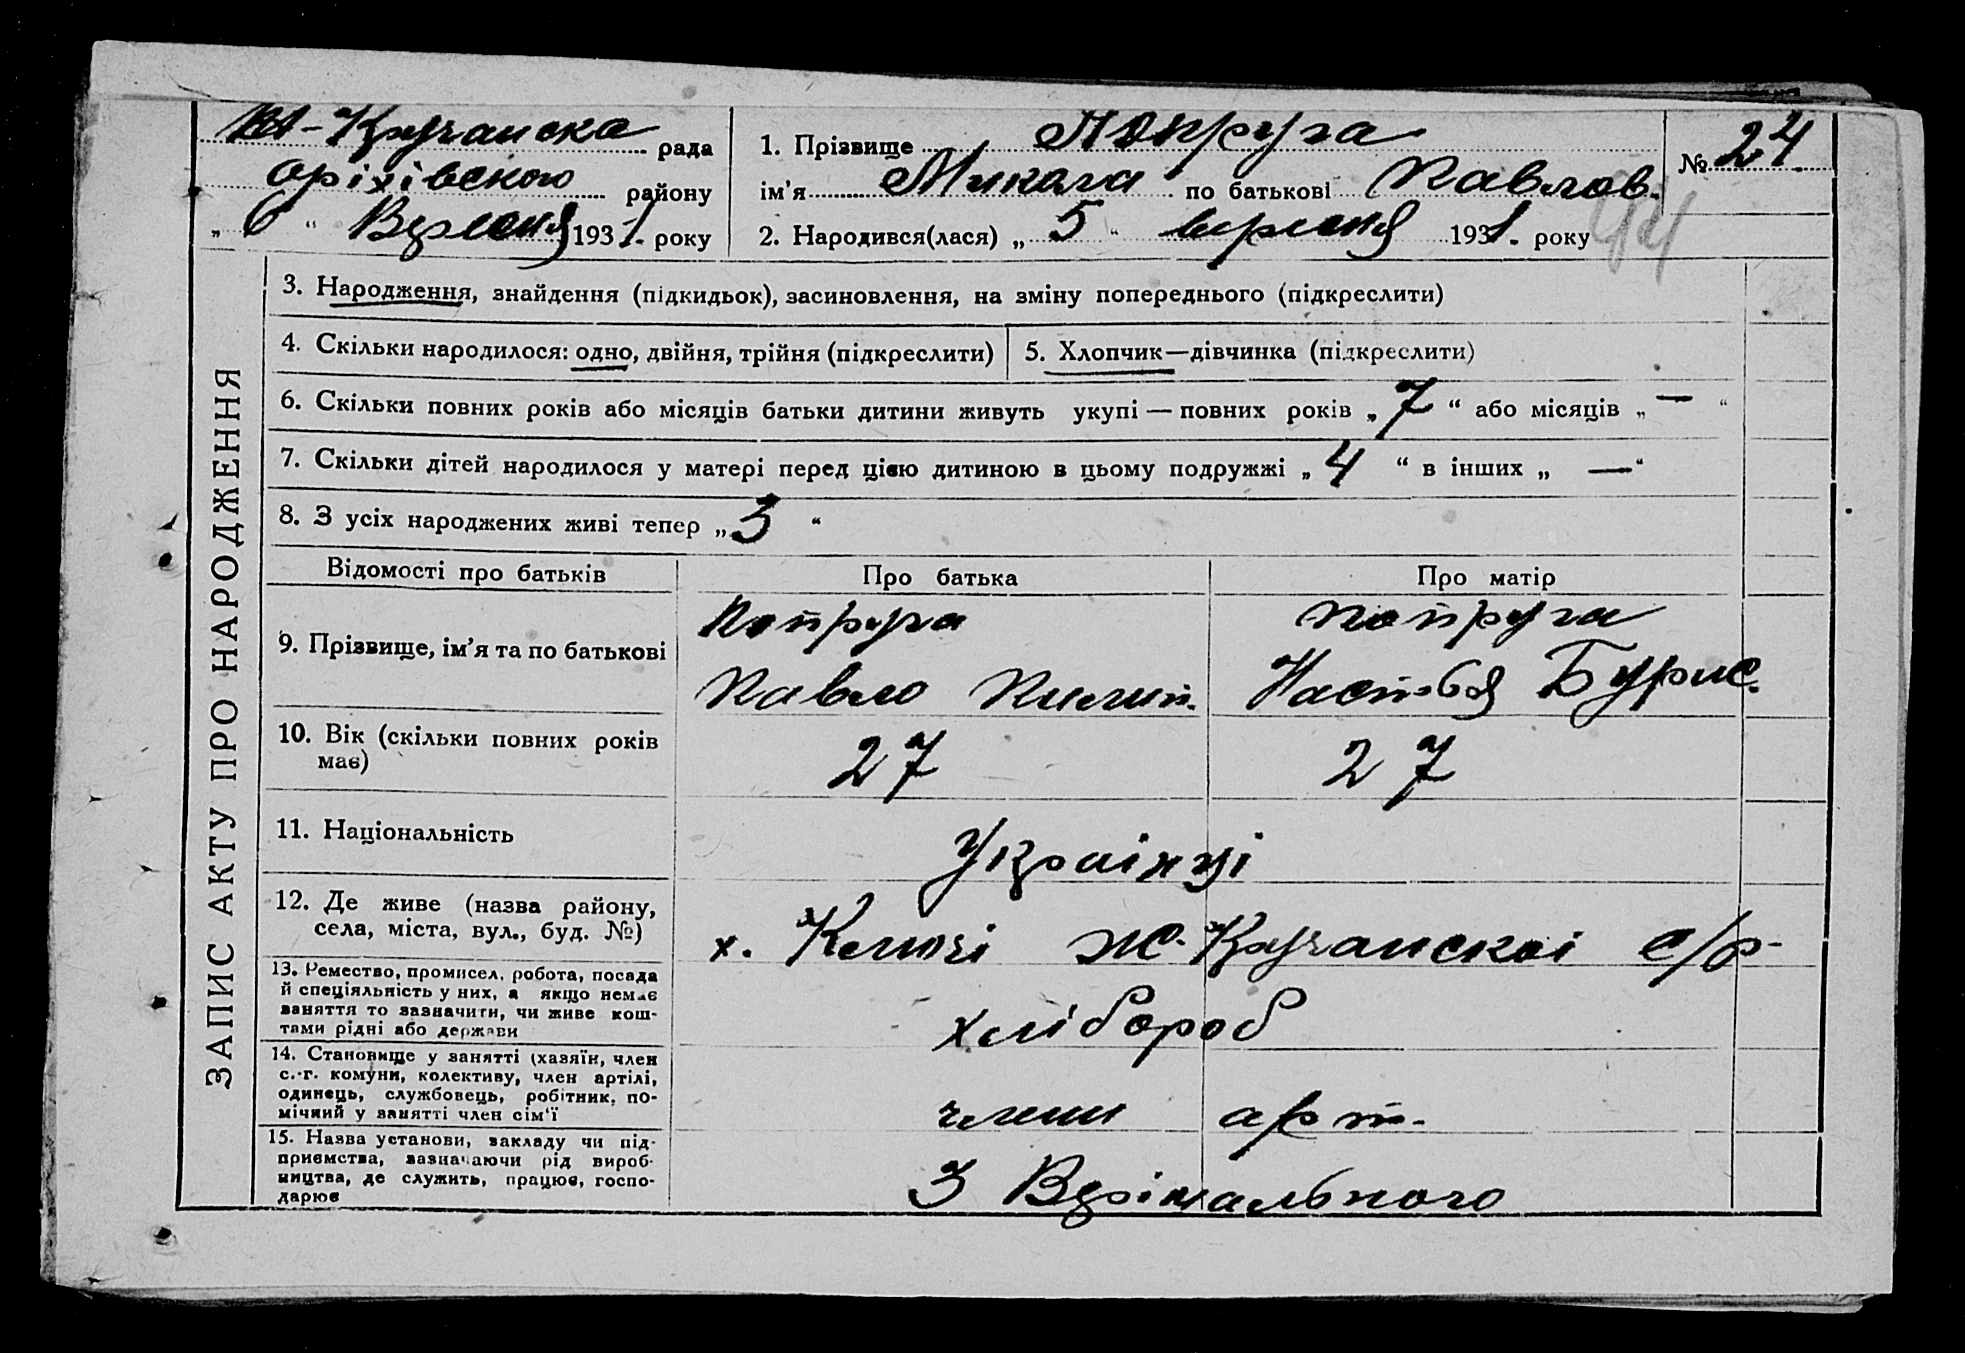 Кручанска рада
Оріхівского району
„ 6 “ Вересня 1931. року
1. Прізвище Попруга
ім’я Микола по батькові Павлов.
2. Народився(лася) „ 5 “ вересня 1931. року
№ 24
94
3. Народження, знайдення (підкидьок), засиновлення, на зміну попереднього (підкреслити)
4. Скільки народилося: одно, двійня, трійня (підкреслити)
5. Хлопчик—дівчинка (підкреслити)
6. Скільки повних років або місяців батьки дитини живуть укупі — повних років „ 7 “ або місяців „ — “
7. Скільки дітей народилося у матері перед цією дитиною в цьому подружжі „ 4 “ в інших „ — “
8. З усіх народжених живі тепер „ 3 “
ЗАПИС АКТУ ПРО НАРОДЖЕННЯ
Відомості про батьків
Про батька
Про матір
9. Прізвище, ім’я та по батькові
Попруга
Павло Пилип.
Попруга
Настя
10. Вік (скільки повних років
має)
27
27
11. Національність
Украінці
12. Де живе (назва району,
села, міста, вул., буд. №)
х. Ключі Кручанскоі с/р
13. Ремество, промисел, робота, посада
й спеціяльність у них, а якщо немає
заняття то зазначити, чи живе кош-
тами рідні або держави
хлібороб
14. Становище у занятті (хазяїн, член
с.-г. комуни, колективу, член артілі,
одинець, службовець, робітник, по-
мічний у занятті член сім’ї
члени арт.
15. Назва установи, закладу чи під-
приємства, зазначаючи рід вироб-
ництва, де служить, працює, госпо-
дарює
З